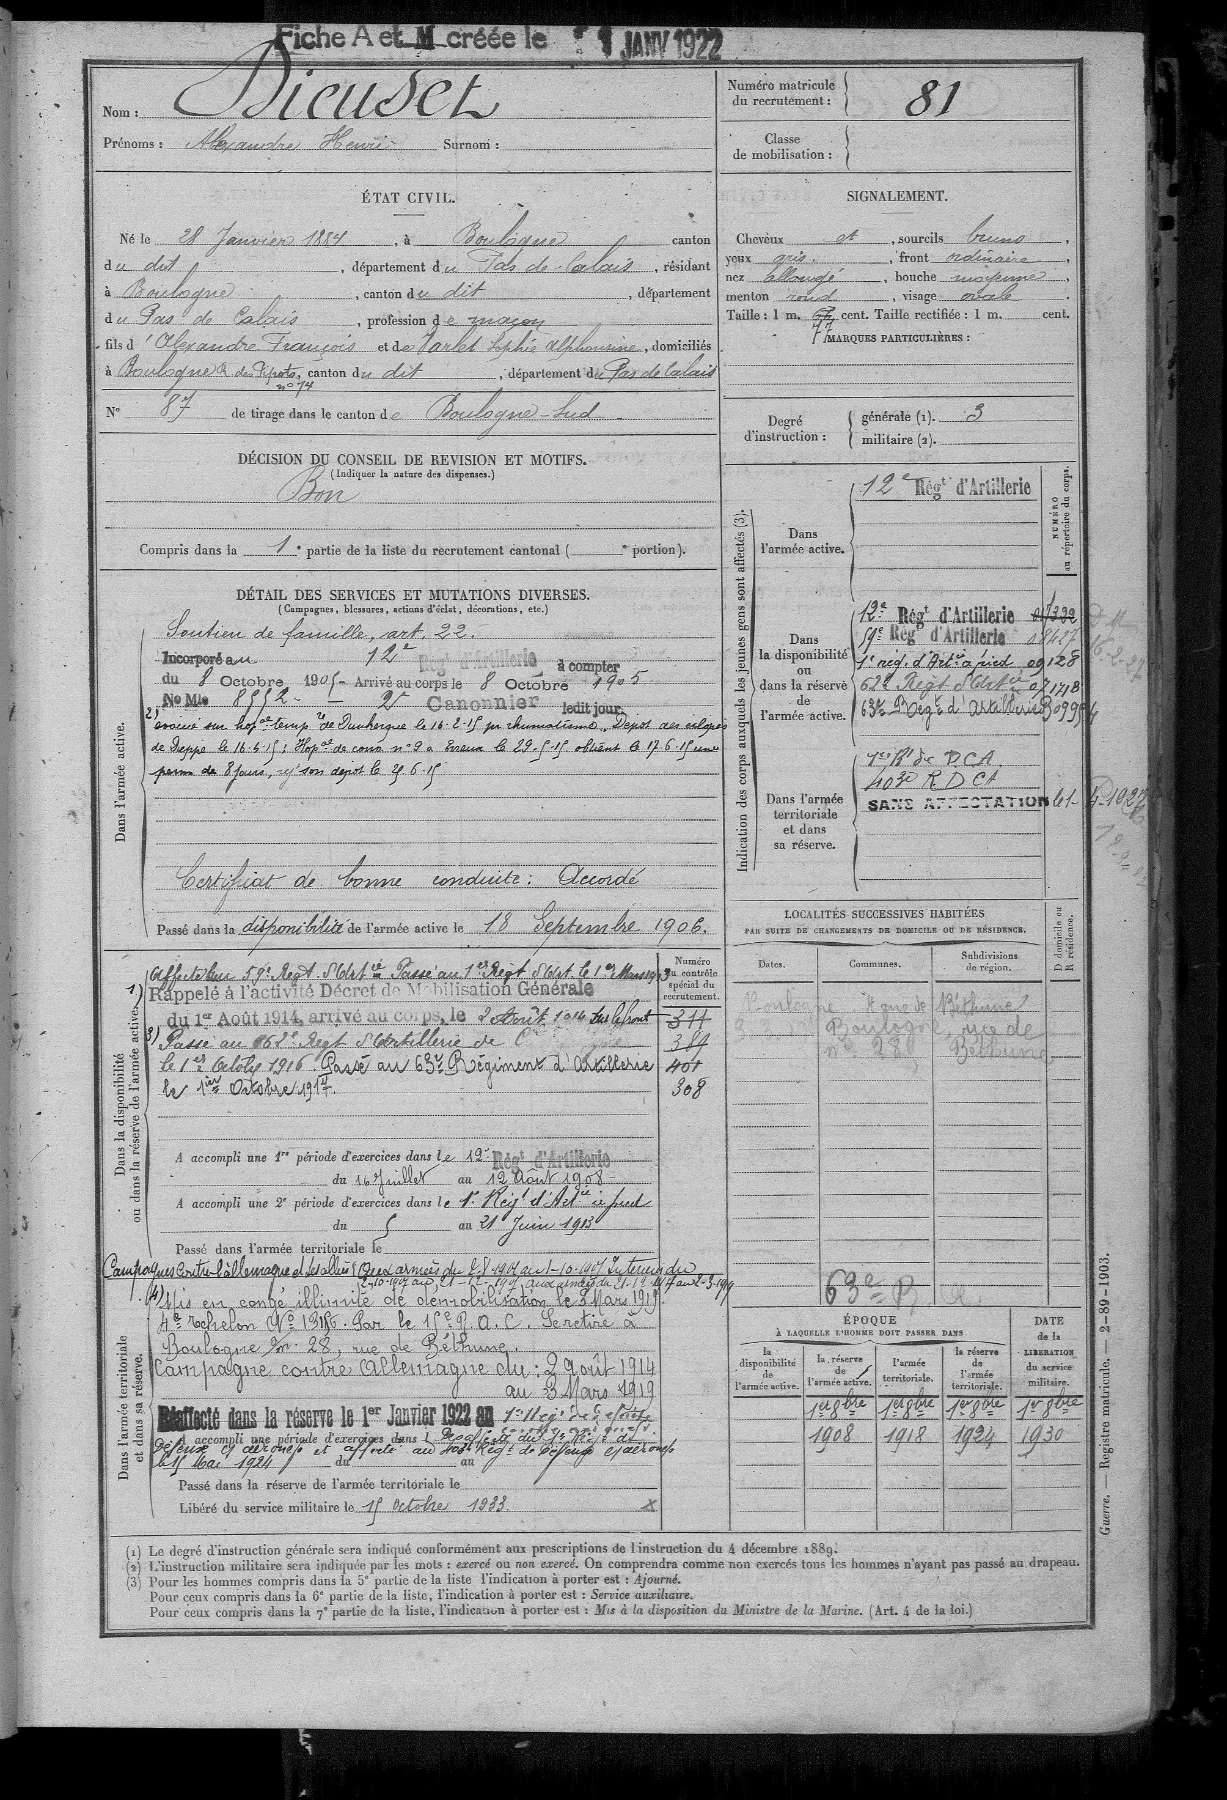 Fiche A et M créée le 1 JANV 1922
Nom : Dieuset
Prénoms : Alexandre Henri Surnom :
Numéro matricule du recrutement : 81
Classe de mobilisation :
ÉTAT CIVIL.
Né le 28 Janvier 1884, à Boulogne canton
du dit, département du Pas-de-Calais, résidant
à Boulogne, canton du dit, département
du Pas de Calais, profession de maçon
fils d'Alexandre François et de Varlet Sophie Alphonsine, domiciliés
à Boulogne R. des Pipots, canton du dit, département du Pas de Calais
n° 74
N° 87 de tirage dans le canton de Boulogne-Sud
SIGNALEMENT.
Cheveux et, sourcils bruns,
yeux gris, front ordinaire,
nez allongé, bouche moyenne,
menton rond, visage ovale.
Taille : 1 m. 77 cent. Taille rectifiée : 1 m. cent.
MARQUES PARTICULIÈRES :
Degré d'instruction : générale (1). 3
militaire (2).
DÉCISION DU CONSEIL DE REVISION ET MOTIFS.
(Indiquer la nature des dispenses.)
Bon
Compris dans la 1e partie de la liste du recrutement cantonal ( e portion).
DÉTAIL DES SERVICES ET MUTATIONS DIVERSES.
(Campagnes, blessures, actions d'éclat, décorations, etc.)
Dans l'armée active.
Soutien de famille, art. 22.
Incorporé au 12e Régt d'Artillerie à compter
du 8 Octobre 1905 - Arrivé au corps le 8 Octobre 1905
No Mle 8552 - 2e Canonnier ledit jour.
2) évacué sur hopal tempre de Dunkerque le 16-2-15 pr rhumatisme. Depot des eclopés
de Dieppe le 16-5-15 ; Hopal de conv. n° 9 à Evreux le 29-5-15 obtient le 17-6-15 une
perm de 8 jours, rej son depot le 25-6-15
Certificat de bonne conduite : Accordé
Passé dans la disponibilité de l'armée active le 18 Septembre 1906.
Indication des corps auxquels les jeunes gens sont affectés (3).
NUMÉRO au répertoire du corps.
Dans l'armée active.
12e Régt d'Artillerie
Dans la disponibilité ou dans la réserve de l'armée active.
12e Régt d'Artillerie
59e Régt d'Artillerie
1e rég. d'Artie à pied 09128
62e Régt d'Artie 07 1718
63e Régt d'Artillerie
Dans l'armée territoriale et dans sa réserve.
1er Rt de DCA.
403e R D C A
SANS AFFECTATION
LOCALITÉS SUCCESSIVES HABITÉES
PAR SUITE DE CHANGEMENTS DE DOMICILE OU DE RÉSIDENCE.
Dates. Communes. Subdivisions de région. D domicile ou R résidence.
Boulogne rue de Béthune
Boulogne, rue de
n° 28 Béthune
63e R. A.
Dans la disponibilité ou dans la réserve de l'armée active.
Numéro au contrôle spécial du recrutement.
1) Affecté au 59e Régt d'Artie Passé au 1er Régt d'Art. le 1er Mars 1913
Rappelé à l'activité Décret de Mobilisation Générale
du 1er Août 1914, arrivé au corps, le 2 Août 1914
311
3) Passé au 62e Régt d'Artillerie de
389
le 1er Octobre 1916. Passé au 63e Régiment d'Artillerie
401
le 1er Octobre 1917.
308
A accompli une 1re période d'exercices dans le 12e Régt d'Artillerie
du 16 Juillet au 12 Août 1908
A accompli une 2e période d'exercices dans le 1er Régt d'Artie à pied
du 5 au 21 Juin 1913
Passé dans l'armée territoriale le
Dans l'armée territoriale et dans sa réserve.
Campagnes contre l'allemagne
4) Mis en congé illimité de démobilisation le 3 Mars 1919.
4e échelon Par le 15e R.A.C. Se retire à
Boulogne s/m 28, rue de Béthune.
Campagne contre Allemagne du : 2 août 1914
au 3 Mars 1919
Réaffecté dans la réserve le 1er Janvier 1922 au
A accompli une période d'exercices dans l
du au
le 15 Mai 1924
Passé dans la réserve de l'armée territoriale le
Libéré du service militaire le 15 octobre 1933.
ÉPOQUE
À LAQUELLE L'HOMME DOIT PASSER DANS
la disponibilité de l'armée active. la réserve de l'armée active. l'armée territoriale. la réserve de l'armée territoriale.
DATE de la LIBÉRATION du service militaire.
1er 8bre 1er 8bre 1er 8bre 1er 8bre
1908 1918 1924 1930
Guerre. — Registre matricule. — 2-89-1903.
(1) Le degré d'instruction générale sera indiqué conformément aux prescriptions de l'instruction du 4 décembre 1889.
(2) L'instruction militaire sera indiquée par les mots : exercé ou non exercé. On comprendra comme non exercés tous les hommes n'ayant pas passé au drapeau.
(3) Pour les hommes compris dans la 5e partie de la liste l'indication à porter est : Ajourné.
Pour ceux compris dans la 6e partie de la liste, l'indication à porter est : Service auxiliaire.
Pour ceux compris dans la 7e partie de la liste, l'indication à porter est : Mis à la disposition du Ministre de la Marine. (Art. 4 de la loi.)